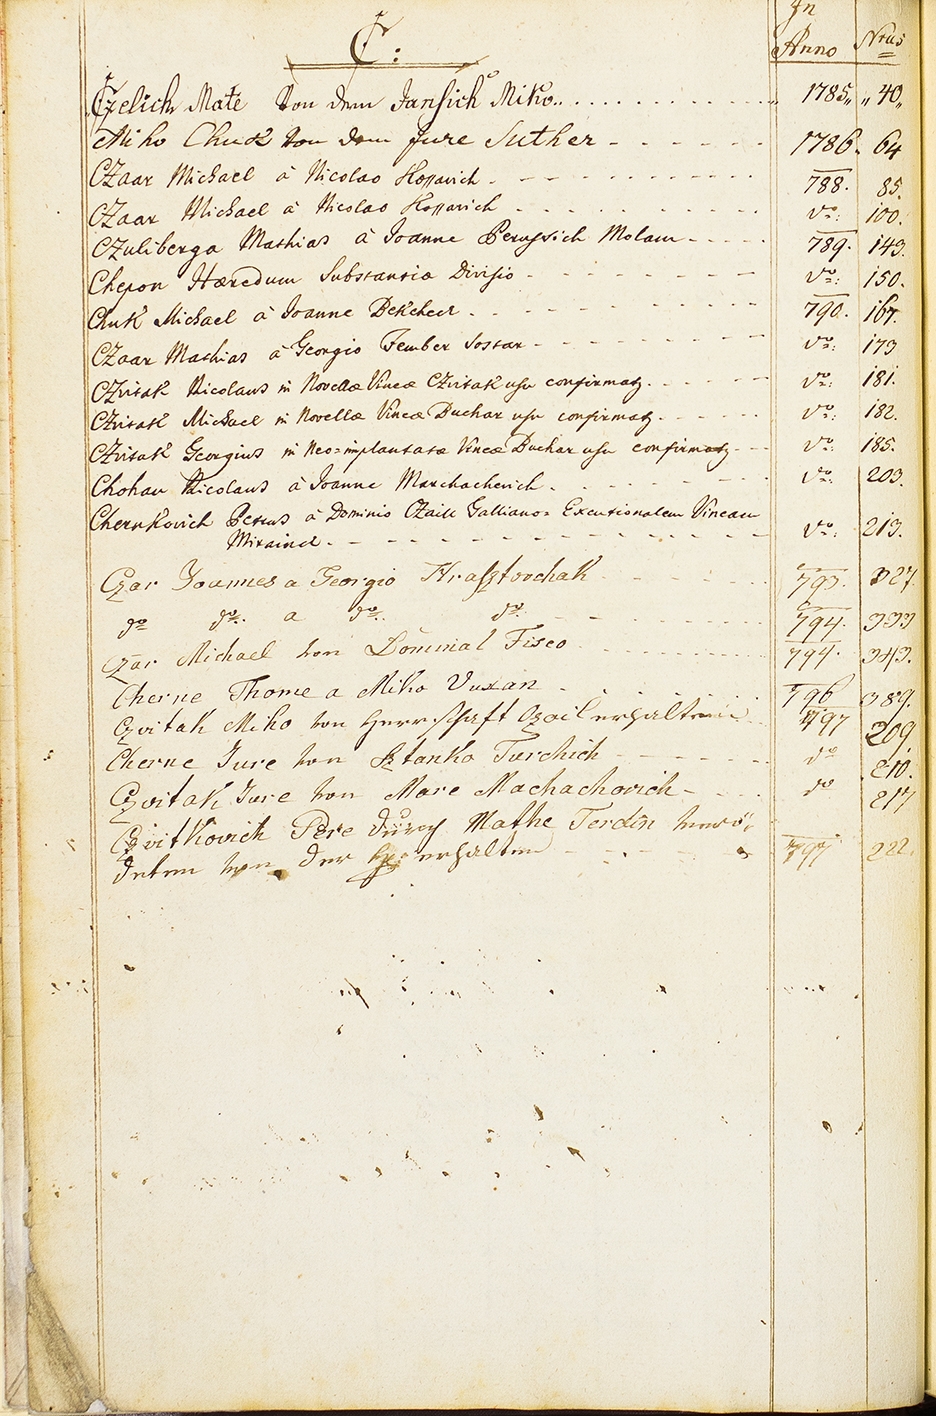 C:
In
Anno Nrus
Czelich Mate Von dem Jansich Miko 1785 40
Miho Chuk von dem Jure Suther 1786. 64
CZaar Michael à Nicolao Kossavich 788. 85.
CZaar Michael à Nicolao Kossavich do: 100.
CZuliberga Mathias à Joanne Perussich Molam 789. 143.
Chepon Hæredum Substantiæ Divisio do: 150.
Chuk Michael à Joanne 790. 167.
CZaar Mathias à Georgio Fember Sostar do: 173
CZvitak Nicolaus in Novellæ Vineæ CZvitak usu confirmatq do: 181.
CZvitak Michael in Novellæ Vineæ Duchar usu confirmatq do: 182.
CZvitak Georgius in Neo=implantatæ Vineæ Duchar usu confirmatq do: 185.
Chohan Nicolaus à Joanne Machachevich do: 203.
Chernkovich Petrus à Dominio CZaili Galliano= Excursionalem Vineam
Miraind do: 213.
Czar Joannes a Georgio Hrasztovchak 793. 327.
do do. a do. do. 794. 333
Czar Michael von Dominial Fisco 794. 343.
Cherne Thome a Miko Vuxan 796 389.
Czvitak Miko von Herrschaft Czail erhalten 797 209
Cherne Jure von Sztanko Turchich do 210.
Czvitak Jure von Mare Machachovich do 217
Czvitkovich Pere durch Mathe Terdin
von der erhalten 797 222.